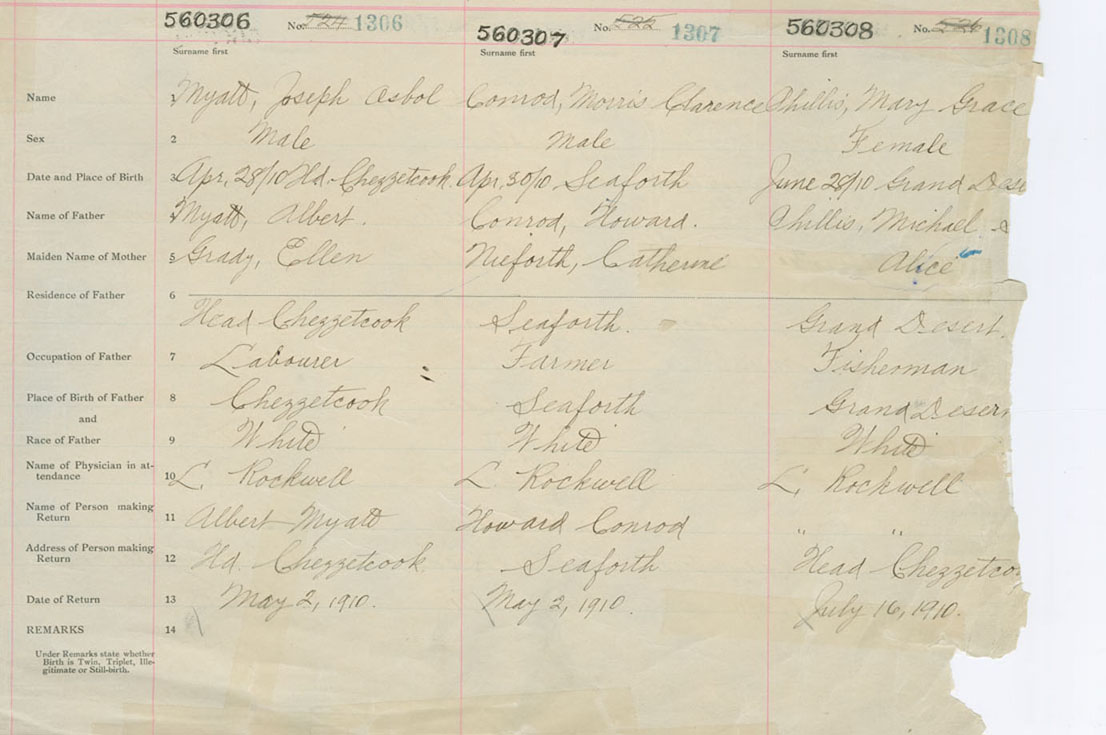 560306 No. 1306 560307 No. 522 1307 560308 No. 1308
Surname first Surname first Surname first
Name 1 Myatt, Joseph Osbol Conrod, Morris Clarence Phillis, Mary Grace
Sex 2 Male Male Female
Date and Place of Birth 3 Apr. 28/10 Hd. Chezzetcook. Apr. 30/10 Seaforth June 28/10 Grand Dese
Name of Father Myatt, Albert. Conrod, Howard. Phillis, Michael
Maiden Name of Mother 5 Grady, Ellen Nieforth, Catherine Alice
Residence of Father 6
Head Chezzetcook Seaforth. Grand Desert.
Occupation of Father 7 Labourer Farmer Fisherman
Place of Birth of Father 8 Chezzetcook Seaforth Grand Deser
and
Race of Father 9 White White White
Name of Physician in at-
tendance 10 L. Rockwell L. Rockwell L. Rockwell
Name of Person making
Return 11 Albert Myatt Howard Conrod " "
Address of Person making
Return 12 Hd. Chezzetcook. Seaforth Head Chezzetco
Date of Return 13 May 2, 1910. May 2, 1910. July 16, 1910.
REMARKS 14
Under Remarks state whether
Birth is Twin, Triplet, Ille-
gitimate or Still-birth.